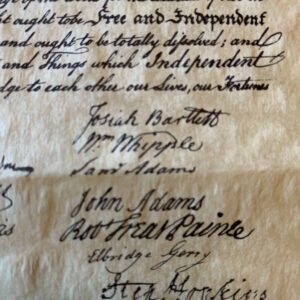 ght to be Free and Independent
and ought to be totally dissolved; and
and Things which Independent
dge to each other our Lives, our Fortunes
Josiah Bartlett
Wm Whipple
Saml Adams
John Adams
Robt Treat Paine
Elbridge Gerry
Step Hopkins